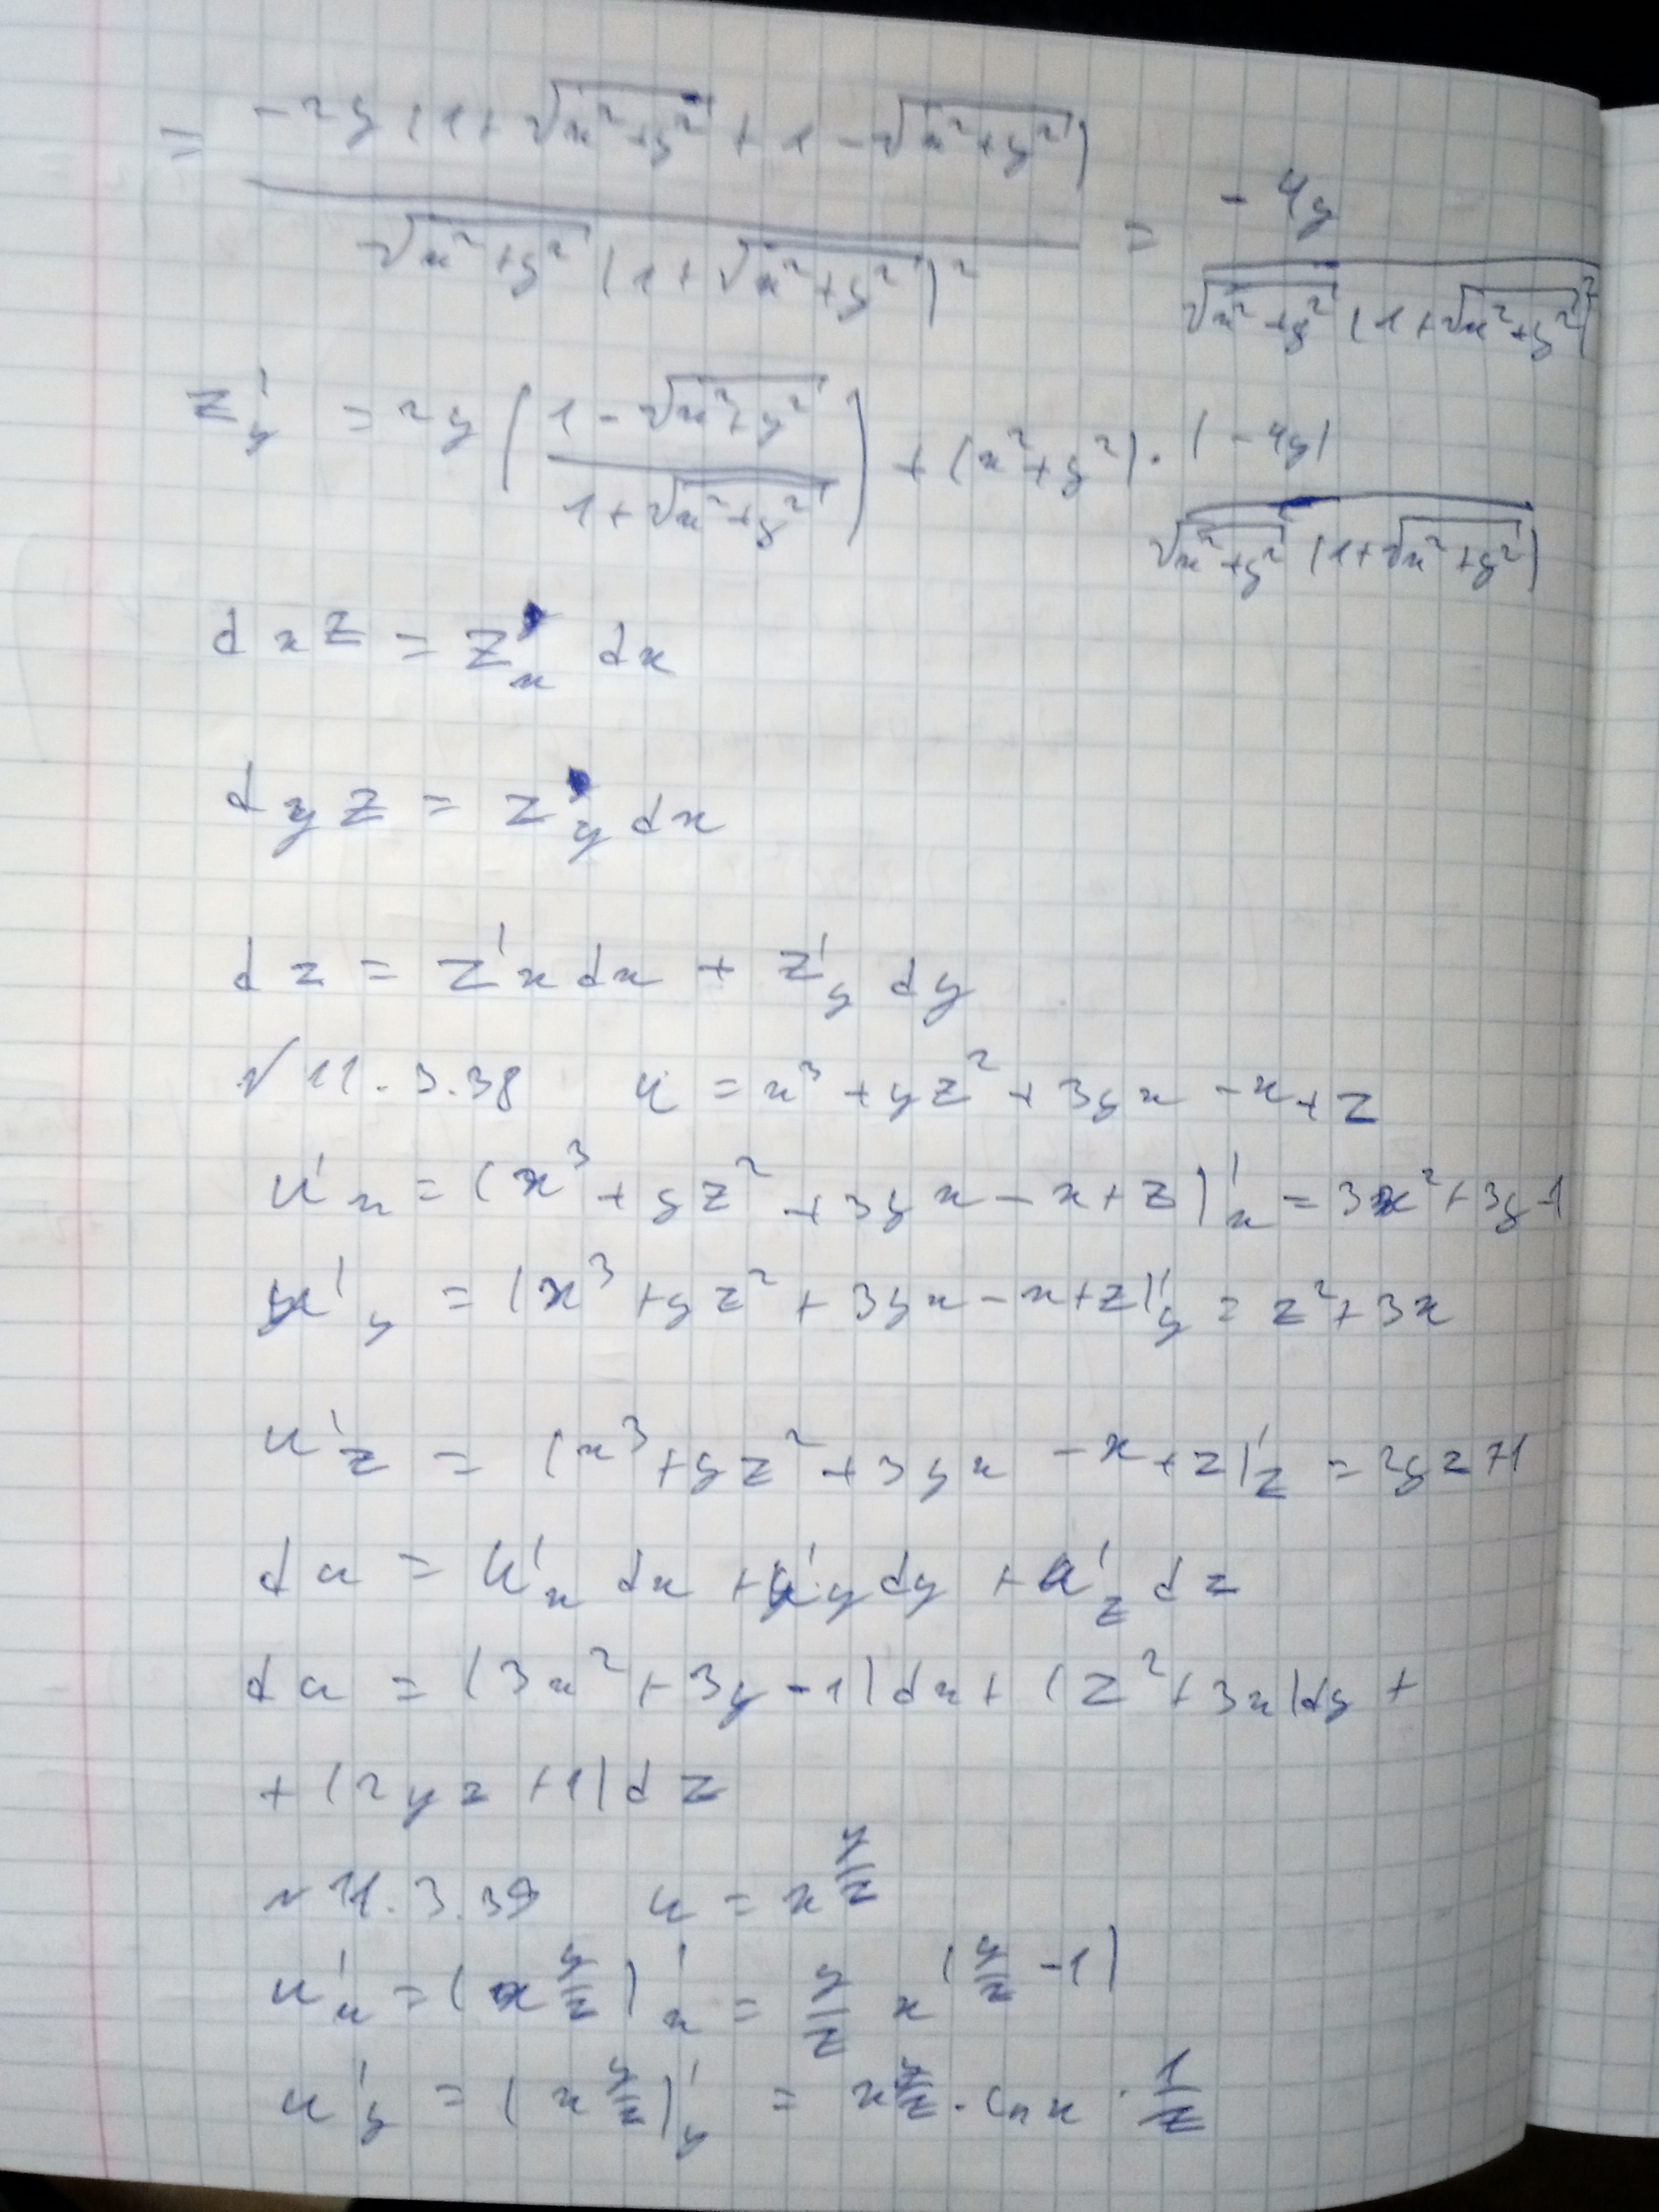 = \frac{-2y(1+\sqrt{x^2+y^2}+1-\sqrt{x^2+y^2})}{\sqrt{x^2+y^2}(1+\sqrt{x^2+y^2})^2} = \frac{-4y}{\sqrt{x^2+y^2}(1+\sqrt{x^2+y^2})^2}
z'_y = 2y(\frac{1-\sqrt{x^2+y^2}}{1+\sqrt{x^2+y^2}}) + (x^2+y^2) · \frac{(-4y)}{\sqrt{x^2+y^2}(1+\sqrt{x^2+y^2})}
d_x z = z'_x dx
d_y z = z'_y dx
dz = z'_x dx + z'_y dy
№ 11.3.38 u = x^3 + yz^2 + 3yx - x + z
u'_x = (x^3 + yz^2 + 3yx - x + z)'_x = 3x^2 + 3y - 1
u'_y = (x^3 + yz^2 + 3yx - x + z)'_y = z^2 + 3x
u'_z = (x^3 + yz^2 + 3yx - x + z)'_z = 2yz + 1
du = u'_x dx + u'_y dy + u'_z dz
du = (3x^2 + 3y - 1)dx + (z^2 + 3x)dy +
+ (2yz + 1)dz
№ 11.3.39 u = x^{\frac{y}{z}}
u'_x = (x^{\frac{y}{z}})'_x = \frac{y}{z} x^{(\frac{y}{z} - 1)}
u'_y = (x^{\frac{y}{z}})'_y = x^{\frac{y}{z}} · ln x · \frac{1}{z}